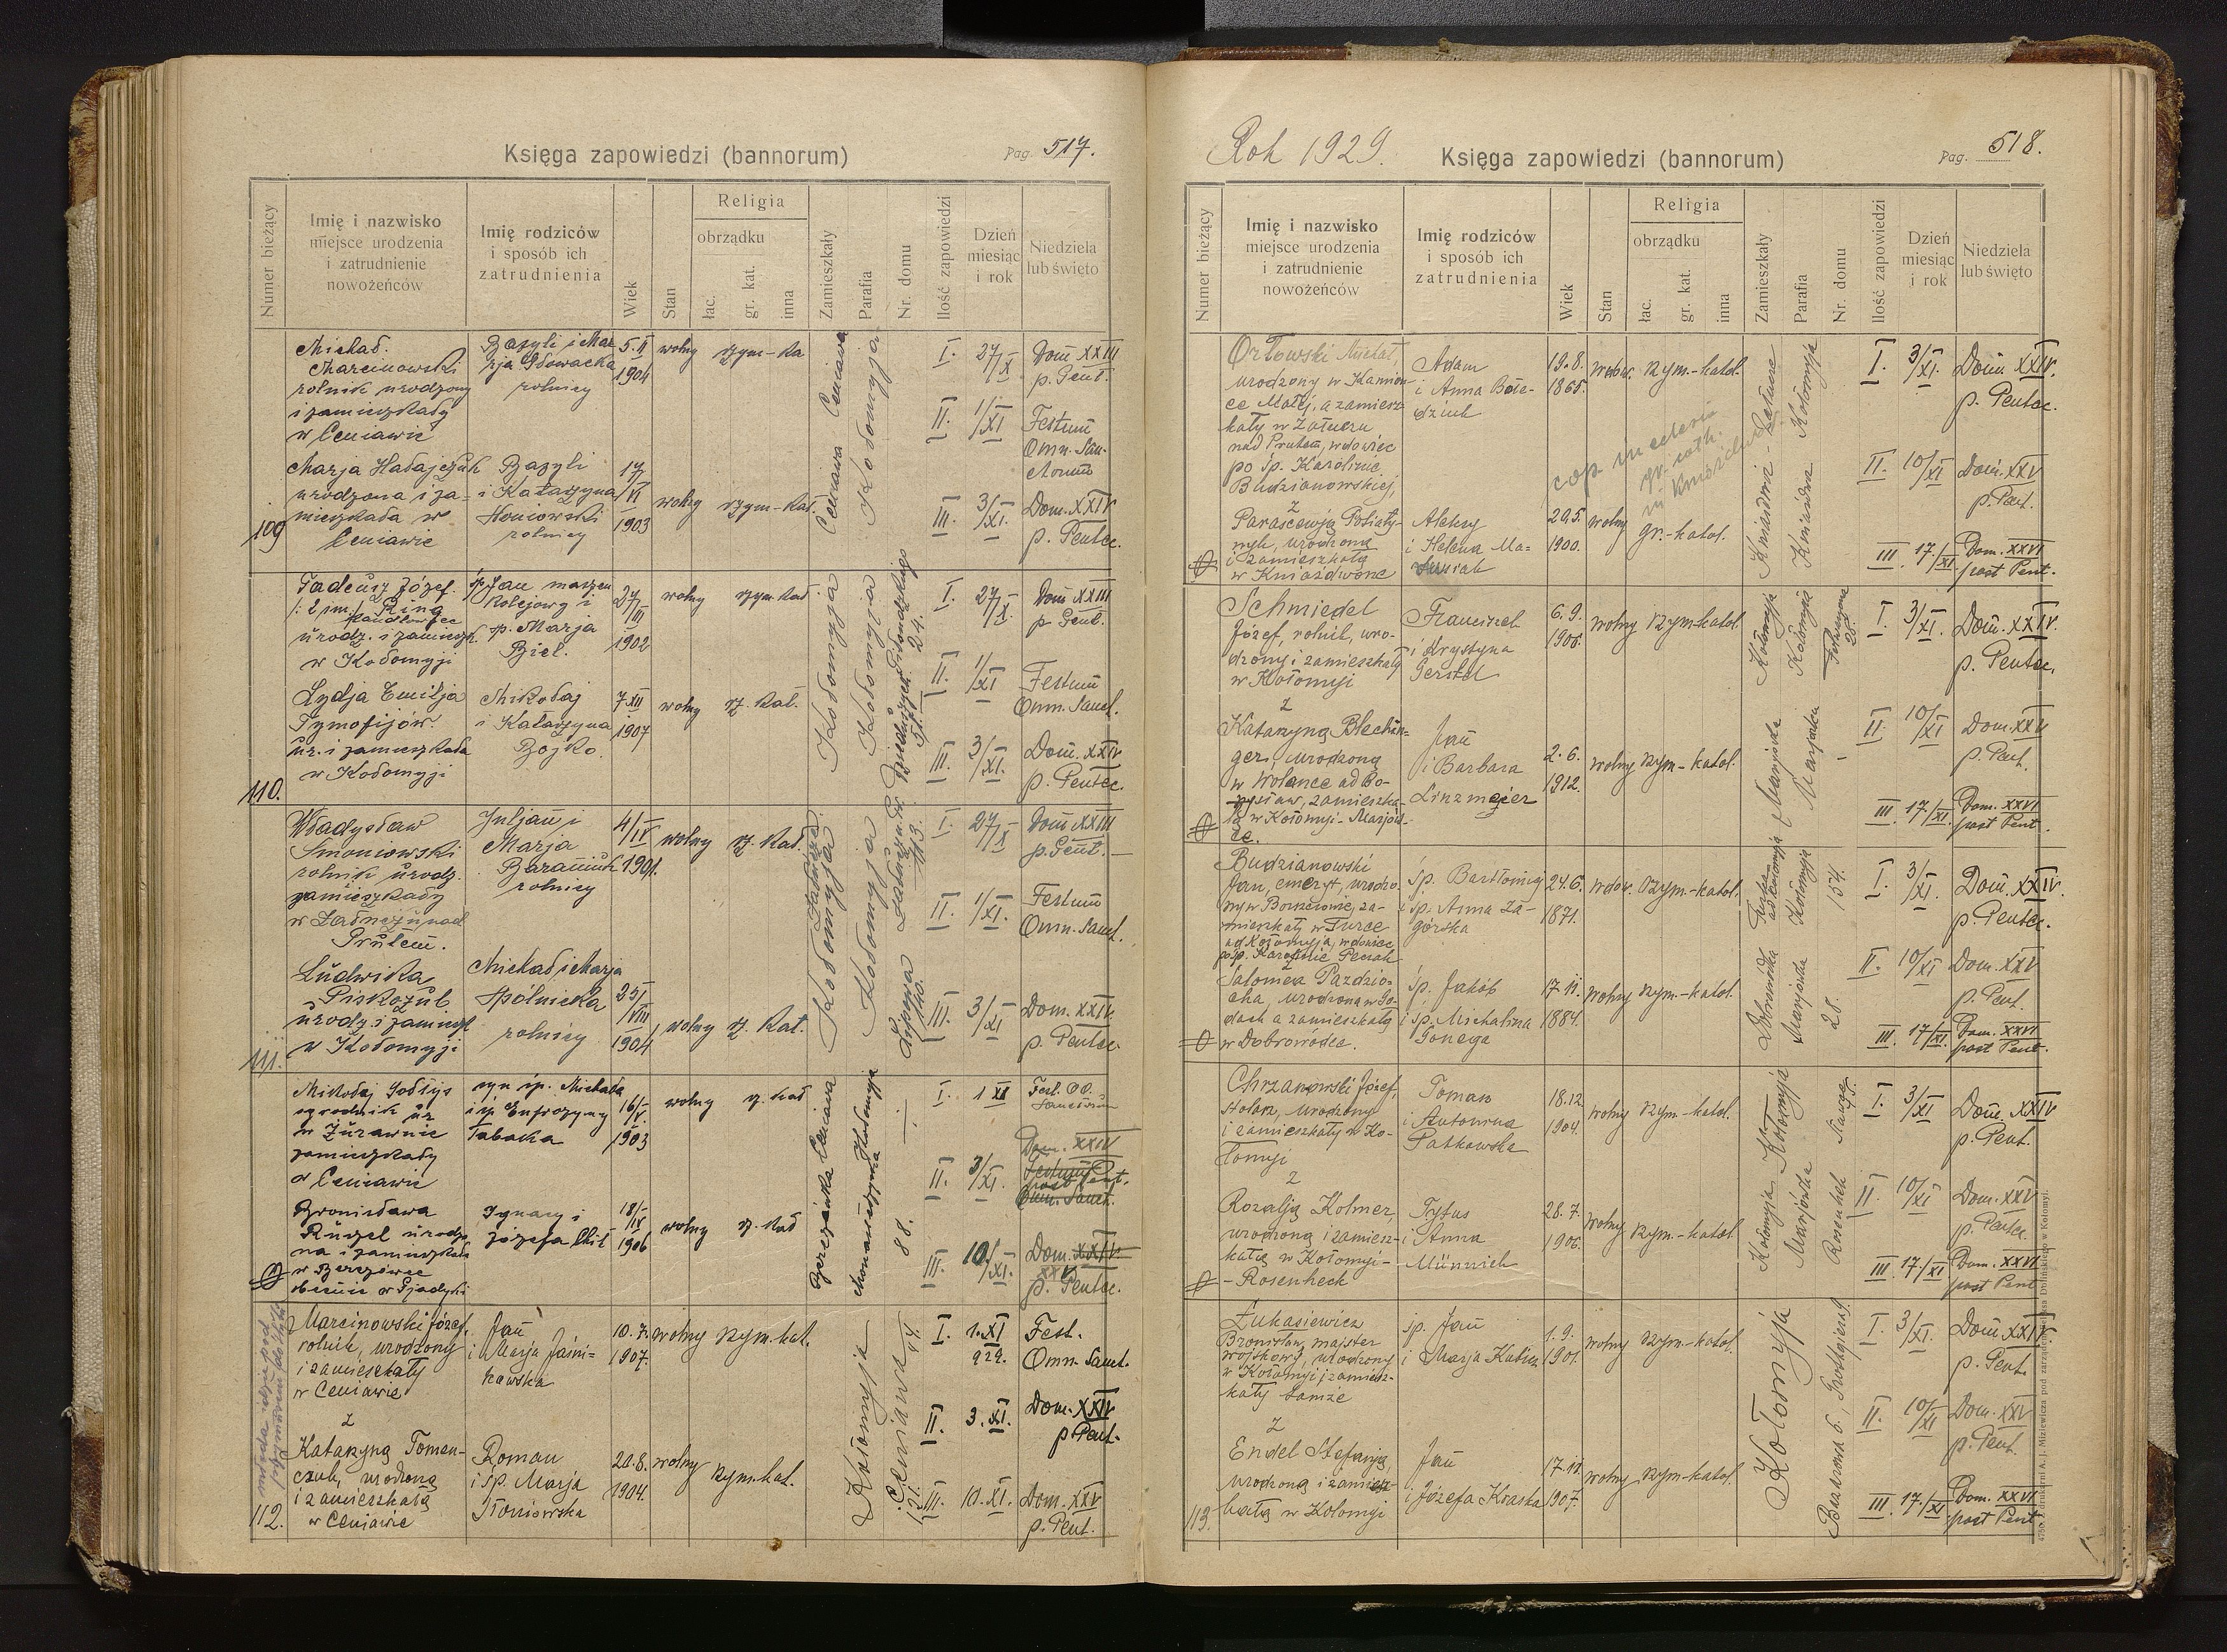 Księga zapowiedzi (bannorum)
Pag. 517.
Numer bieżący
Imię i nazwisko
miejsce urodzenia
i zatrudnienie
nowożeńców
Imię rodziców
i sposób ich
zatrudnienia
Wiek
Stan
Religia
obrządku
łac.
gr. kat.
inna
Zamieszkały
Parafia
Nr. domu
Ilość zapowiedzi
Dzień
miesiąc
i rok
Niedziela
lub święto
109
Michał
Marcinowski
rolnik urodzony
i zamieszkały
w Ceniawie
Bazyli i Ma
rja Głowacka
rolnicy
5. II
1904
wolny
rzym-ka
Ceniawa
Kołomyja
I. 27/X Dom XXIII
p. Pent.
II. 1/XI Festum
Omn. San-
ctorum
III. 3/XI. Dom. XXIV
p. Pentec.
Marja Hałajczuk
urodzona i za-
mieszkała w
Ceniawie
Bazyli
i Katarzyna
Honiowski
rolnicy
17/VI
1903
wolny
rzym-kat.
Ceniawa
110.
Tadeusz Józef
/: 2 im. Ring
handlowiec
urodz. i zamieszk.
w Kołomyji
śp. Jan maszyn
kolejowy i
śp. Marja
Biel.
27/III
1902
wolny
rzym kat
Kołomyja
Kołomyja
24.
I. 27/X. Dom XXIII
p Pent.
II. 1/XI Festum
Omn. Sanct.
III. 3/XI. Dom. XXIV
p. Pentec.
Lydja Emilja
Tymofijów
ur. i zamieszkała
w Kołomyji
Mikołaj
i Katarzyna
Bojko
7 XII
1907
wolny
rz. kat.
111.
Władysław
Smoniowski
rolnik urodz.
zamieszkały
w Ładnezu nad
Prutem.
Juljan i
Marja
Baraniuk
rolnicy
4/IV
1901.
wolny
rz. kat.
Kołomyja
Kołomyja
113.
I. 27/X Dom XXIII
p. Pent.
II. 1/XI. Festum
Omn. Sanct.
III. 3/XI Dom. XXIV
p. Pentec.
Ludwika
Piskozub
urodz. i zamieszk
w Kołomyji
Michał i Marja
Spólnicka
rolnicy
25/VIII
1904
wolny rz. Kat.
Mikołaj Sołtys
ogrodnik ur
w Żurawnie
zamieszkały
w Ceniawie
syn śp. Michała
i śp. Eufrozyny
Tabaka
16/V.
1903
wolny
rz. kat
Ceniawa
Kołomyja
I. 1 XI Fest. OO.
Sanctorum
II. 3/XI. Dom. XXIV
Festum
post Pent.
Omn. Sanct.
III. 10/XI. Dom. XXIV
XXV
p. Pentec.
Bronisława
Ruzel urodzo
na i zamieszkała
w Berezówce
obecnie w Pjadyki
Ignacy i
Józefa Chić
18/IV
1906
wolny
rz. kat
Berezówka
88.
112.
Marcinowski Józef,
rolnik, urodzony
i zamieszkały
w Ceniawie
z
Jan
i Marja Jaśni-
kowska
10. 7.
1907.
wolny rzym. kat.
Kołomyja
Ceniawa
I. 1. XI
929. Fest.
Omn. Sanct.
II. 3. XI. Dom. XXIV
p. Pent.
III. 10. XI. Dom. XXV
p. Pent.
Katarzyną Toman-
czuk, urodzoną
i zamieszkałą
w Ceniawie
Roman
i śp. Marja
Honiowska
20. 8.
1904.
wolny
rzym. kat.
121.
Rok 1929.
Księga zapowiedzi (bannorum)
Pag. 518.
Numer bieżący
Imię i nazwisko
miejsce urodzenia
i zatrudnienie
nowożeńców
Imię rodziców
i sposób ich
zatrudnienia
Wiek
Stan
Religia
obrządku
łac.
gr. kat.
inna
Zamieszkały
Parafia
Nr. domu
Ilość zapowiedzi
Dzień
miesiąc
i rok
Niedziela
lub święto
Orłowski Michał,
urodzony w Kamion-
ce Małej, a zamiesz-
kały w Załuczu
nad Prutem, wdowiec
po śp. Karolinie
Budzianowskiej,
z
Adam
i Anna Bole-
dziuk
19. 8.
1865.
wdow. rzym.-katol.
cop. in eclesia
gr. cath.
in Kniaźdwor
Załucze
Kołomyja
I. 3/XI. Dom XXIV.
p. Pentec.
II. 10/XI Dom. XXV
p. Pent.
III. 17./XI Dom. XXVI
post Pent.
Parascewją Poliaty-
nyk, urodzoną
i zamieszkałą
w Kniaźdworze
Aleksy
i Helena Ma-
20. 5.
1900.
wolny gr.-katol.
Kniaźdwór
Schmiedel
Józef, rolnik, uro-
dzony i zamieszkały
w Kołomyji
z
Franciszek
i Krystyna
Gerstel
6. 9.
1906.
wolny rzym-katol.
Kołomyja
Kołomyja
28.
I. 3/XI. Dom. XXIV.
p. Pentec.
II. 10/XI Dom. XXV
p. Pent.
III. 17./XI. Dom. XXVI
post Pent.
Katarzyną Blechin-
ger, urodzoną
w Wolance ad Bo-
rysław, zamieszka-
łą w Kołomyi-Marjów-
ce.
Jan
i Barbara
Linzmejer
2. 6.
1912.
wolny rzym-katol.
Budzianowski
Jan, emeryt, urodzo-
ny w Borszczowie, za-
mieszkały w Turce
ad Kołomyja, wdowiec
po śp. Karolinie Peciak
z
śp. Bartłomiej
i śp. Anna Za-
górska
24. 6.
1871.
wdow. rzym.-katol.
Turka
ad Kołomyja
Kołomyja
154.
I. 3/XI. Dom. XXIV.
p. Pentec.
II. 10/XI Dom. XXV
p. Pent.
III. 17/XI. Dom. XXVI
post Pent.
Salomea Pazdzio-
cha, urodzona w Go-
dach a zamieszkałą
w Dobrowódce.
śp. Jakób
i śp. Michalina
Gonega
17. 11.
1884.
wolny rzym.-katol.
28.
Chrzanowski Józef,
stolarz, urodzony
i zamieszkały w Ko-
łomyi
z
Roman
i Antonina
Patkowska
18. 12.
1904.
wolny rzym.-katol.
Kołomyja
I. 3/XI Dom. XXIV
p. Pent.
II. 10/XI Dom. XXV
p. Pentec.
III. 17./XI Dom. XXVI
post Pent
Rozalją Kolmer,
urodzoną i zamiesz-
kałą w Kołomyi-
-Rosenheck
Tytus
i Anna
Münnich
28. 7.
1906.
wolny rzym.-katol.
Kołomyja
Marjówka
Rosenheck
113.
Łukasiewicz
Bronisław, majster
wojskowy, urodzony
w Kołomyi i zamiesz-
kały tamże
z
śp. Jan
i Marja Kubisz
1. 9.
1901.
wolny rzym-katol.
Kołomyja
I. 3/XI. Dom. XXIV
p. Pent.
II. 10/XI Dom. XXV
p. Pent.
III. 17./XI Dom. XXVI
post Pent
Endel Stefanją,
urodzoną i zamiesz-
kałą w Kołomyi
Jan
i Józefa Kraska
17. 11.
1907.
wolny rzym-katol.
4750. Z drukarni A. J. Miziewicza pod zarządem Klemensa Dolińskiego w Kołomyi.